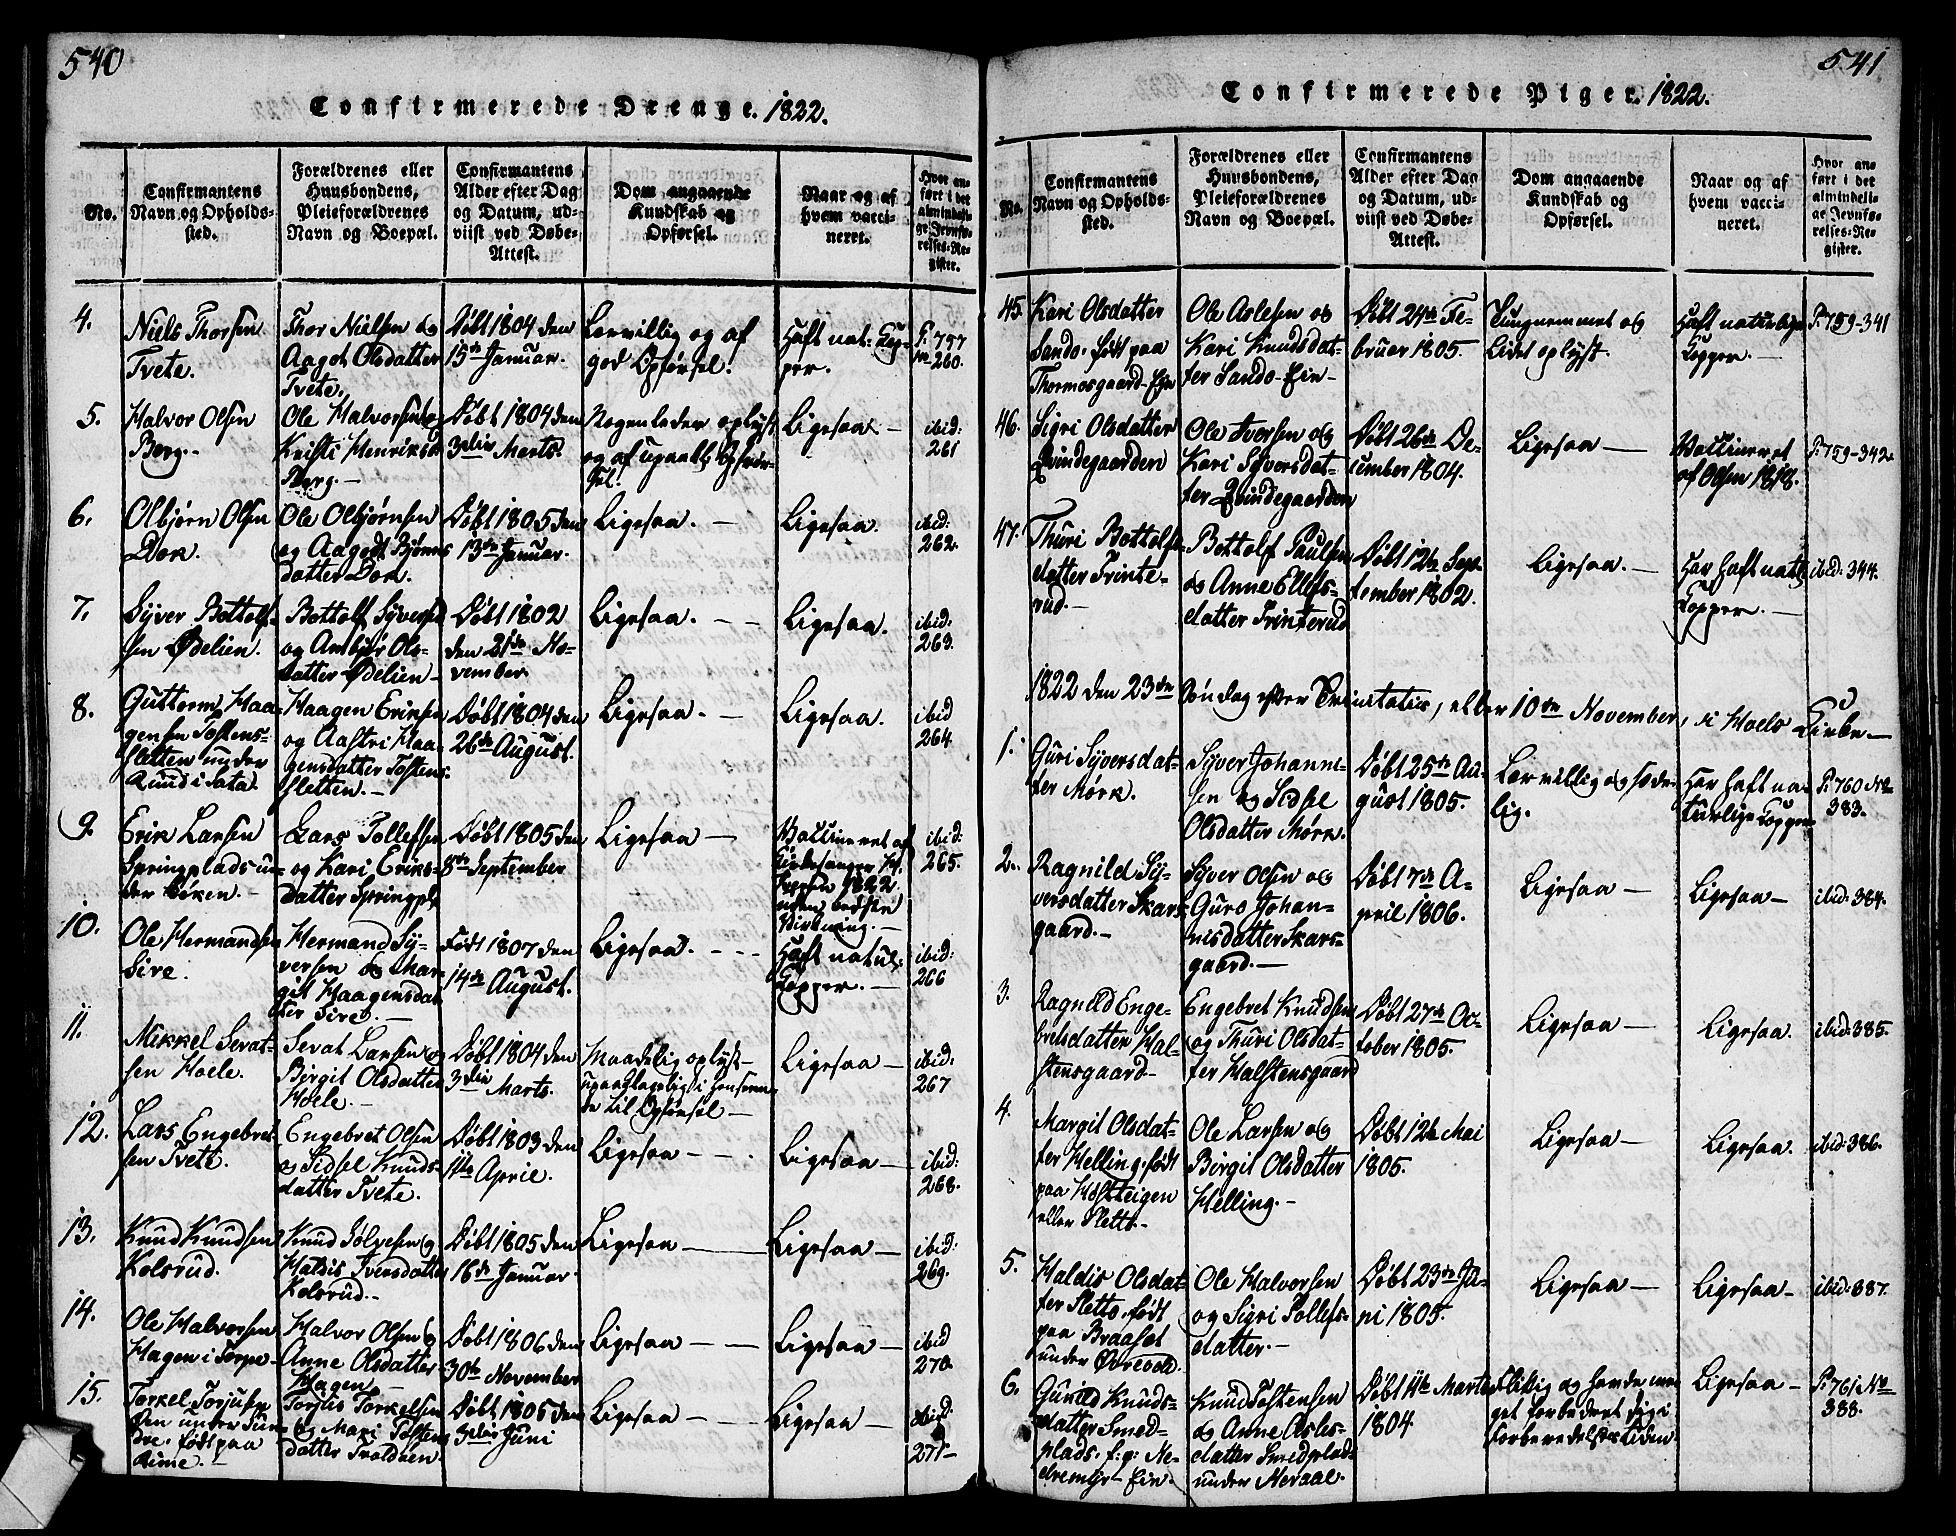 540
Confirmerede Drenge. 1822.
No.
Confirmantens
Navn og Opholds-
sted.
Forældrenes eller
Huusbondens,
Pleieforældrenes
Navn og Boepæl.
Confirmantens
Alder efter Dag
og Datum, ud-
viist ved Døbe-
Attest.
Dom angaaende
Kundskab og
Opførsel.
Naar og af
hvem vacci-
neret.
Hvor an-
ført i det
almindeli-
ge Jevnfø-
relses-Re-
gister.
4.
Niels Thorsen
Tvete.
Thor Nielsen og
Aagot Olsdatter
Tvete.
Døbt 1804 den
15de Januar.
Lærvillig og af
god Opførsel.
Haft nat: Kop-
per.
P. 757
No 260.
5.
Halvor Olsen
Berg.
Ole Halvorsen og
Kristi Henriksd
Berg.
Døbt 1804 den
3die Marts.
Nogenledes oplyst
og af upaakl: Opfør-
sel.
Ligesaa.
ibid:
261
6.
Olbjørn Olsen
Dok.
Ole Olbjørnsen
og Aagodt Bjørns
datter Dok.
Døbt 1805 den
13de Januar.
Ligesaa.
Ligesaa.
ibid:
262.
7.
Syver Bottolf-
sen Ødelien.
Bottolf Syversen
og Ambjør Ols-
datter Ødelien
Døbt 1802
den 21de No-
vember.
Ligesaa.
Ligesaa.
ibid:
263.
8.
Guttorm Haa-
gensen Tostens-
sletten under
Ruud i Sata.
Haagen Eriksen
og Aastri Haa-
gensdatter Tostens-
sletten.
Døbt 1804 den
26de August.
Ligesaa.
Ligesaa.
ibid
264
9.
Erik Larsen
Springplads un-
der Eken.
Lars Tollefsen
og Kari Eriks-
datter Springpl.
Døbt 1805 den
8de September
Ligesaa
Vaccineret af
1822
uden
Virkning.
ibid:
265.
10.
Ole Hermandsen
Sire.
Hermand Sy-
versen og Mar-
git Haagensdat-
ter Sire.
Født 1807 den
14de August.
Ligesaa.
Haft natul:
Kopper.
ibid:
266
11.
Mikkel Sevat-
sen Hoele.
Sevat Larsen og
Birgit Olsdatter
Hoele.
Døbt 1804 den
3die Marts.
Maadelig oplyst
upaaklagelig i Henseen-
de til Opførsel
Ligesaa
ibid:
267
12.
Lars Engebret-
sen Tvete.
Engebret Olsen
og Sidsel Knuds-
datter Tvete.
Døbt 1803 den
11te April.
Ligesaa
Ligesaa
ibid:
268.
13.
Knud Knudsen
Kolsrud.
Knud Sølvesen og
Haldis Iversdatter
Kolsrud.
Døbt 1805 den
16de Januar.
Ligesaa
Ligesaa
ibid:
269.
14.
Ole Halvorsen
Hagen i Torpe
Halvor Olsen og
Anne Olsdatter
Hagen
Døbt 1806 den
30te November
Ligesaa
Ligesaa
ibid
270.
15.
Torkel Torjus-
sen under Sun-
dre, født paa
Rime.
Torjus Torkelsen
og Mari Tosten
datter Troldøen.
Døbt 1805 den
3die Juni
Ligesaa
Ligesaa
ibid:
271
541
Confirmerede Piger. 1822.
No.
Confirmantens
Navn og Opholds-
sted.
Forældrenes eller
Huusbondens,
Pleieforældrenes
Navn og Boepæl.
Confirmantens
Alder efter Dag
og Datum, ud-
viist ved Døbe-
Attest.
Dom angaaende
Kundskab og
Opførsel.
Naar og af
hvem vacci-
neret.
Hvor an-
ført i det
almindeli-
ge Jevnfø-
relses-Re-
gister.
45.
Kari Olsdatter
Sando, født paa
Thormosgaard-Eje
Ole Aslesen og
Kari Knudsdat-
ter Sando-Ein-
Døbt 24de Fe-
bruar 1805.
Tungnemmet og
lidet oplyst.
Haft naturlige
Kopper.
P: 759-341
46.
Sigri Olsdatter
Qvindegaarden
Ole Iversen og
Kari Syversdat-
ter Qvindegaarden
Døbt 26de De-
cember 1804.
Ligesaa
Vaccineret
af Olsen 1818.
P: 759-342.
47.
Thuri Bottolfs-
datter Trinte-
rud.
Bottolf Paulsen
og Anne Ellefs-
datter Trinterud
Døbt 12te Sep-
tember 1802.
Ligesaa.
Har haft natl:
Kopper.
ibid: 344.
1822 den 23de Søndag efter Trinitatis, eller 10de November, i Hoels Kirke.
1.
Guri Syversdat-
ter Mørk.
Syver Johanne-
sen og Sidsel
Olsdatter Mørk.
Døbt 25de Au-
gust 1805.
Lærvillig og sæde-
lig.
Har haft na-
turlige Kopper
P: 760 No
383.
2.
Ragnild Sy-
versdatter Skars-
gaard.
Syver Olsen og
Guro Johan-
nisdatter Skars-
gaard.
Døbt 7de A-
pril 1806.
Ligesaa
Ligesaa
ibid: 384.
3.
Ragnild Enge-
bretsdatter Hal-
stensgaard
Engebret Knudsen
og Thuri Olsdat-
ter Halstensgaard
Døbt 27de Oc-
tober 1805.
Ligesaa
Ligesaa.
ibid: 385.
4.
Margit Olsdat-
ter Helling, født
paa Holsteigen
eller Sletto
Ole Larsen og
Birgit Olsdatter
Helling.
Døbt 12te Mai
1805.
Ligesaa
Ligesaa.
ibid: 386.
5.
Haldis Olsdat-
ter Sletto, født
paa Braaset
under Øvrevold.
Ole Halvorsen
og Sigri Tollefs-
datter.
Døbt 23de Ju-
ni 1805.
Ligesaa
Ligesaa
ibid: 387.
6.
Gunild Knuds-
datter Smed-
plads. f: g: Ne-
dremyr-Ein.
Knud Tostensen
og Anne Asles-
datter Smedplads
under Neraal.
Døbt 11te Marts
1804
Flittig og havde me-
get forbedret sig i
Forberedelsestiden.
Ligesaa
P: 761 No
388.